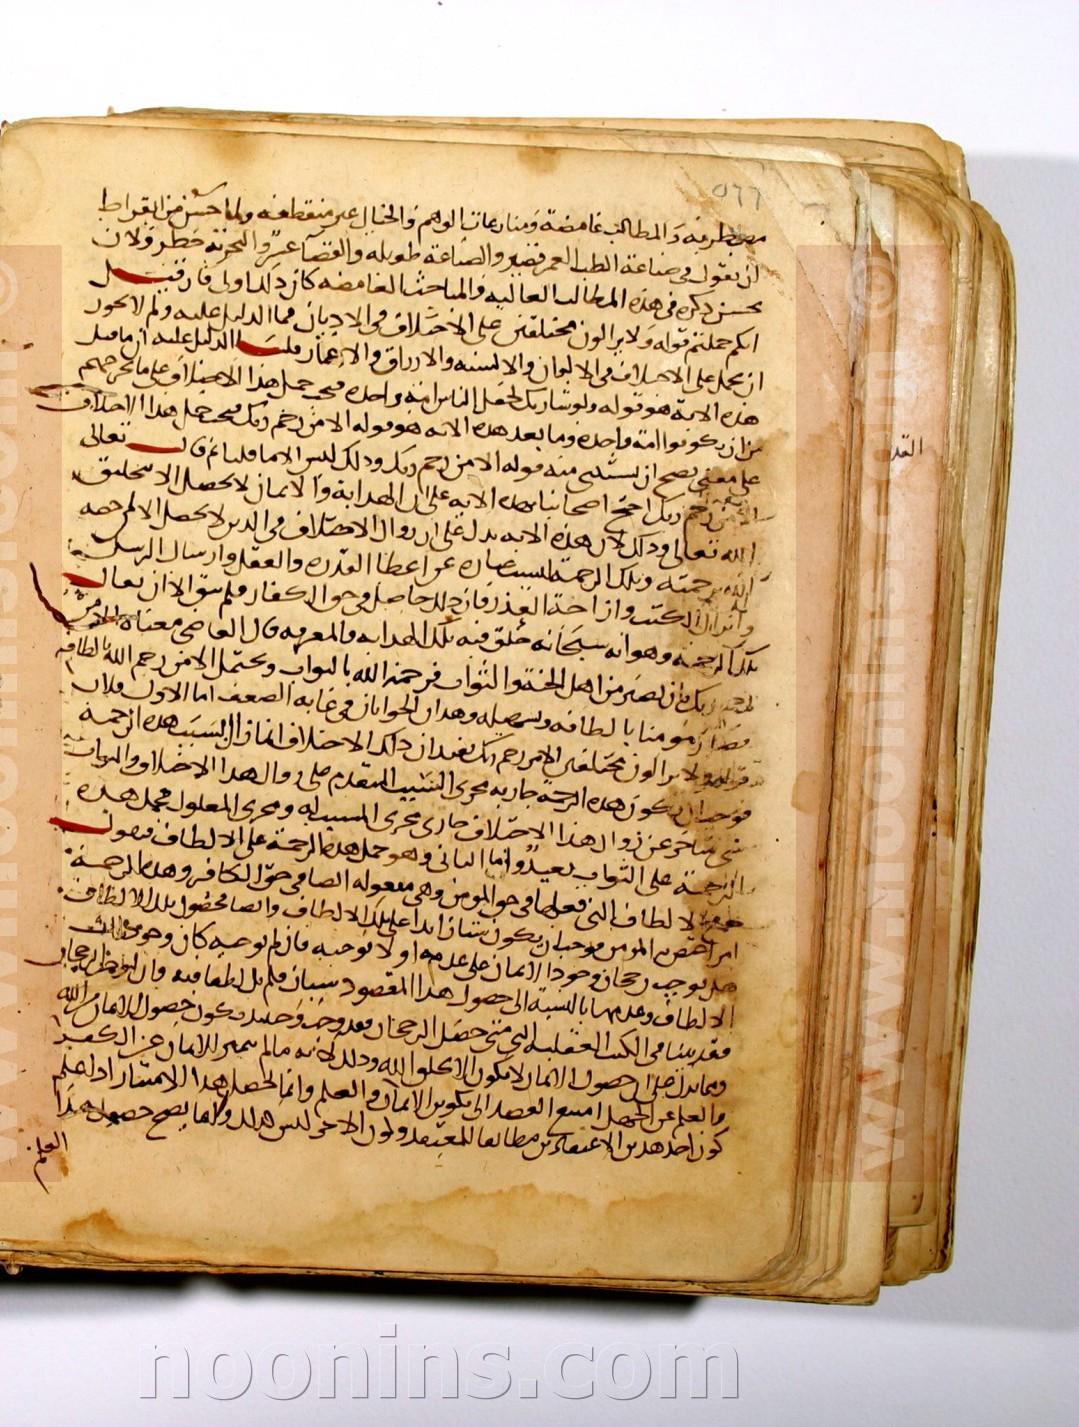 ٥٦٦
مضطربة والمطالب غامضة ومنازعات الوهم والخيال غير منقطعة ولما حسن من ابقراط
ان يقول في صناعة الطب العمر قصير والصناعة طويلة والقضا عسر والتجربة خطر فلان
يحسن ذكره في هذه المطالب العالية والمباحث الغامضة كان ذلك اولى فان قيل
انكم حملتم قوله ولا يزالون مختلفين على الاختلاف في الاديان فما الدليل عليه ولم لا يجوز
ان يحمل على الاختلاف في الالوان والالسنة والارزاق والاعمار قلنا الدليل عليه ان ما قبل
هذه الاية هو قوله ولو شا ربك لجعل الناس امة واحدة فيجب حمل هذا الاختلاف على ما يخرجهم
من ان يكونوا امة واحدة وما بعد هذه الاية هو قوله الا من رحم ربك فيجب حمل هذا الاختلاف
على معنى يصح ان يستثنى منه قوله الا من رحم ربك وذلك ليس الا ما قلنا ثم قال تعالى
الا من رحم ربك احتج اصحابنا بهذه الاية على ان الهداية والايمان لا يحصل الا بتخليق
الله تعالى وذلك لان هذه الاية تدل على ان زوال الاختلاف في الدين لا يحصل الا لمن خصه
الله برحمته وتلك الرحمة ليست عبارة عن اعطا القدرة والعقل وارسال الرسل
وانزال الكتب وازاحة العذر فان ذلك حاصل في حق الكفار فلم يبق الا ان يقال
تلك الرحمة هو انه سبحانه خلق فيه تلك الهداية والمعرفة قال القاضي معناه الا من
رحم ربك بان يصير من اهل الجنة والثواب فيرحمه الله بالثواب ويحتمل الا من رحم الله بالطافه
فصار مومنا بالطافه وتسهيله وهذان الجوابان في غاية الضعف اما الاول فلان
قوله ولا يزالون مختلفين الا من رحم ربك يفيد ان ذلك الاختلاف انما زال بسبب هذه الرحمة
فوجب ان يكون هذه الرحمة جارية مجرى السبب المتقدم على زوال هذا الاختلاف والثواب
شي متاخر عن زوال هذا الاختلاف جاري مجرى المسبب له ومجرى المعلول فحمل هذه
الرحمة على الثواب بعيد واما الثاني وهو حمل هذه الرحمة على الالطاف فنقول
جميع الالطاف التي فعلها في حق المومن فهي مفعولة ايضا في حق الكافر وهذه الرحمة
امر اختص به المومن فوجب ان يكون شيا زايدا على تلك الالطاف وايضا فحصول تلك الالطاف
هل يوجب رجحان وجود الايمان على عدمه او لا يوجبه فان لم يوجبه كان وجود تلك
الالطاف وعدمها بالنسبة الى حصول هذا المقصود سيان فلم يك لطفا فيه وان اوجب الرجحان
فقد بينا في الكتب العقلية انه متى حصل الرجحان فقد وجب وحينئذ يكون حصول الايمان من الله
ومما يدل على ان حصول الايمان لا يكون الا بخلق الله وذلك لانه ما لم يتميز الايمان عن الكفر
والعلم عن الجهل امتنع القصد الى تكوين الايمان والعلم وانما يحصل هذا الامتياز اذا علم
كون احد هذين الاعتقادين مطابقا للمعتقد وكون الاخر ليس كذلك وانما يصح حصول هذا
العلم
القد
noonins.com